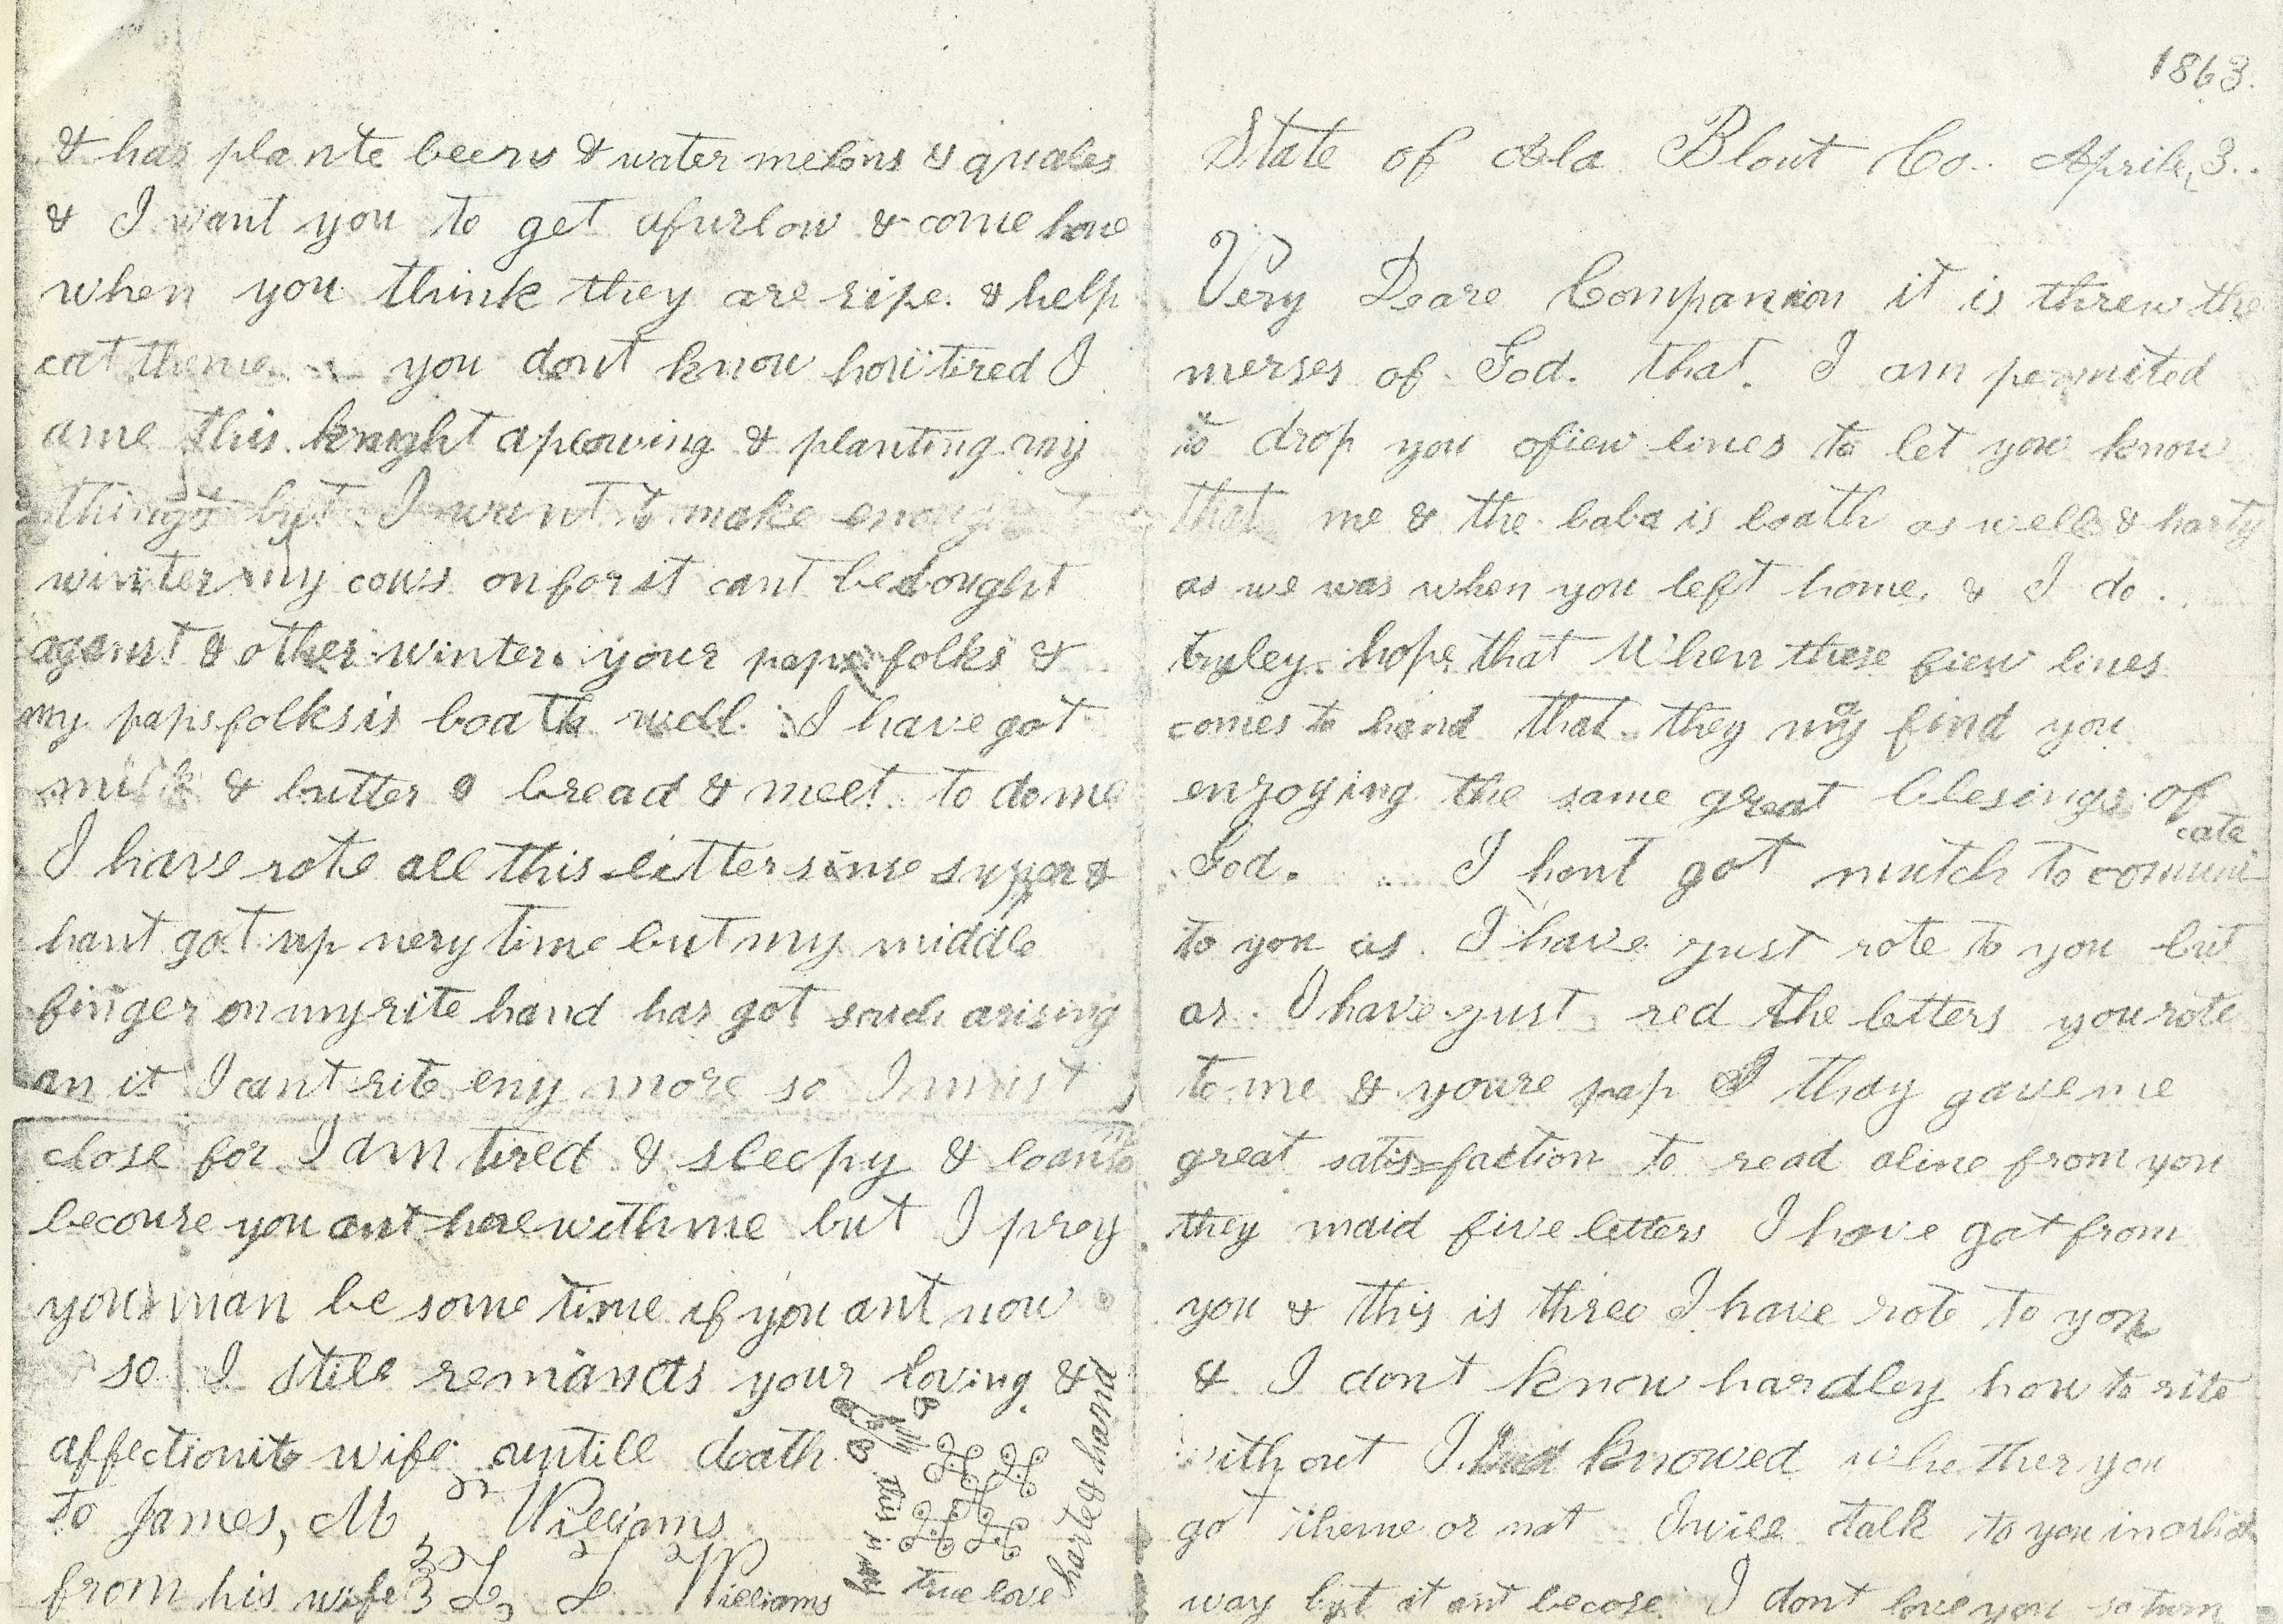 1863.
State of Ala Blout Co. Aprile, 3..
Very Deare Companion it is threw the
merses of God. that. I am permited
to drop you afiew lines to let you know
that me & the baba is boath as well & harty
as we was when you left home. & I do..
truley hope that when these fiew lines
comes to hand that they may find you
enjoying the same great blesings of
God. I hant got mutch to comunicate
to you as I have just rote to you but
as I have just red the letters you rote
to me & youre pap & thay gave me
great satis=faction to read aline from you
they maid five letters I have got from
you & this is three I have rote to you
& I dont know hardley how to rite
without I had knowed whether you
got theme or not I will talk to you in a short
way but it ant becose I dont love you so turn
& has plante beens & water melons & quales
& I want you to get afurlow & come home
when you think they are ripe. & help
eat theme you dont know how tired I
ame this knight aplowing & planting my
things but I want to make enough to
winter my cows on for it cant be bought
against & other winter. your paps folks &
my paps folks is boath well. I have got
milk & butter & bread & meet to do me
I have rote all this letter sinse supper &
hant got up nery time but my middle
finger on my rite hand has got such arising
on it I cant rite eny more so I must
close for I am tired & sleepy &
becouse you ant here with me but I prey
you man be some time if you ant now
so I still remands your loving &
affectionite wife untill death
to James, M, Williams
from his wife L, L Williams
this is my
true love
harte & hand